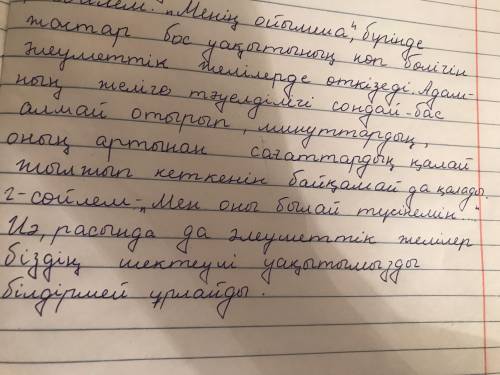 сөйлем: „Менің ойымша," бүгінде
жастар бос уақытының көп бөлігін
әлеуметтік желілерде өткізеді. Адам-
ның желіге тәуелділігі сондай-бас
алмай отырып, минуттардың,
оның артынан сағаттардың қалай
жылжып кеткенін байқамай да қалады.
2-сөйлем-„Мен оны былай түсінемін"...
Иә, расында да әлеуметтік желілер
біздің шектеулі уақытымызды
білдірмей ұрлайды.